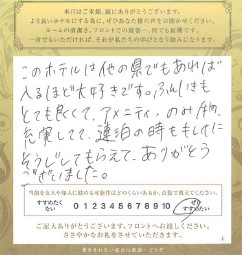 本日はご来館、誠にありがとうございます。
より良いホテルにする為に、ぜひお客様の声をお聞かせください。
ルームの清潔さ、フロントでの接客…、何でも結構です。
一言でもいただければ、それが私たちの学びとなり励みになります。
このホテルは他の県でもあれば
入るほど大好きです。ふんいきも
とても良くて、アメニティ、のみ物、
充実してて、連泊の時もそうじ
してもらえて、ありがとう
ございました。
当館を友人や知人に勧める可能性はどのくらいあるか、点数で教えてください。
すすめたく
ない
0 1 2 3 4 5 6 7 8 9 10
ぜひ
すすめたい
ご記入ありがとうございます。フロントへお渡しください。
ささやかなお礼をさせていただきます。